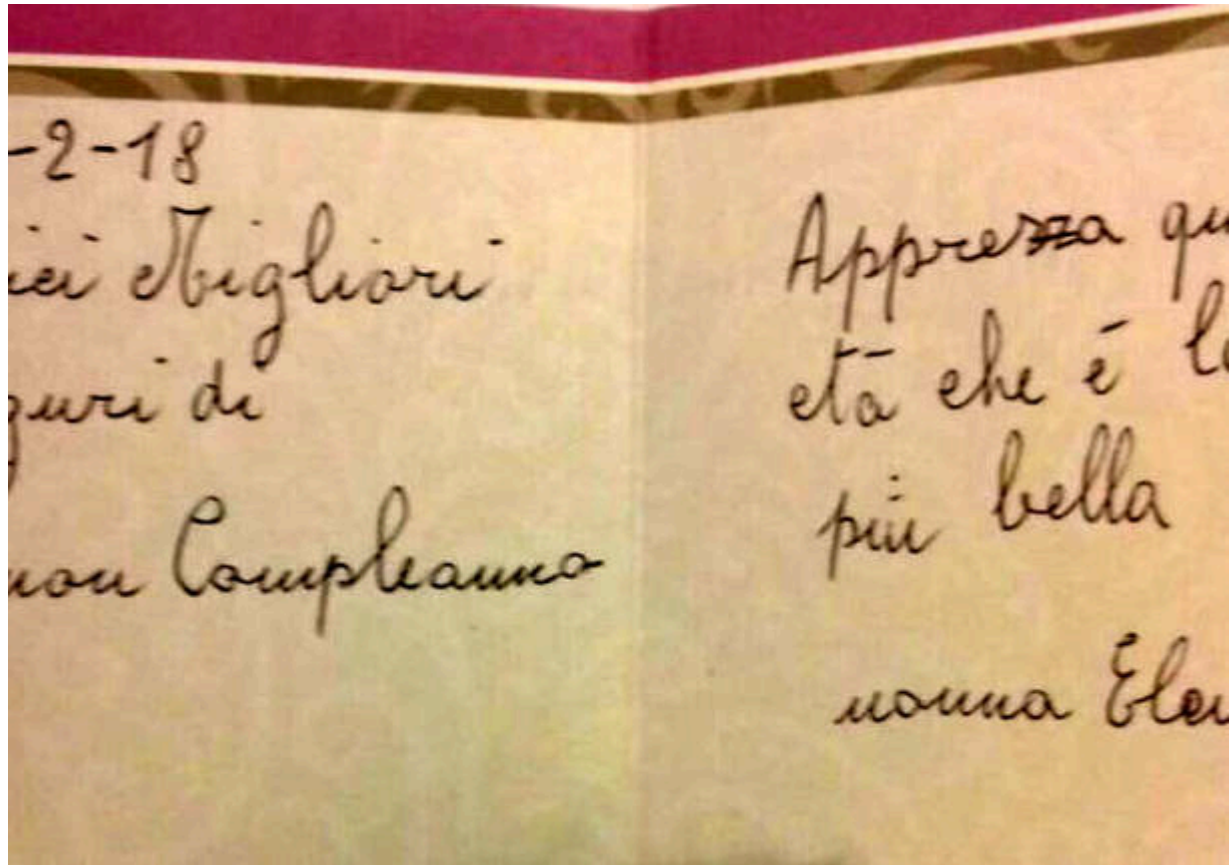 -2-18
ici Migliori
guri di
uon Compleanno
Apprezza qu
età che è la
più bella
nonna Ele